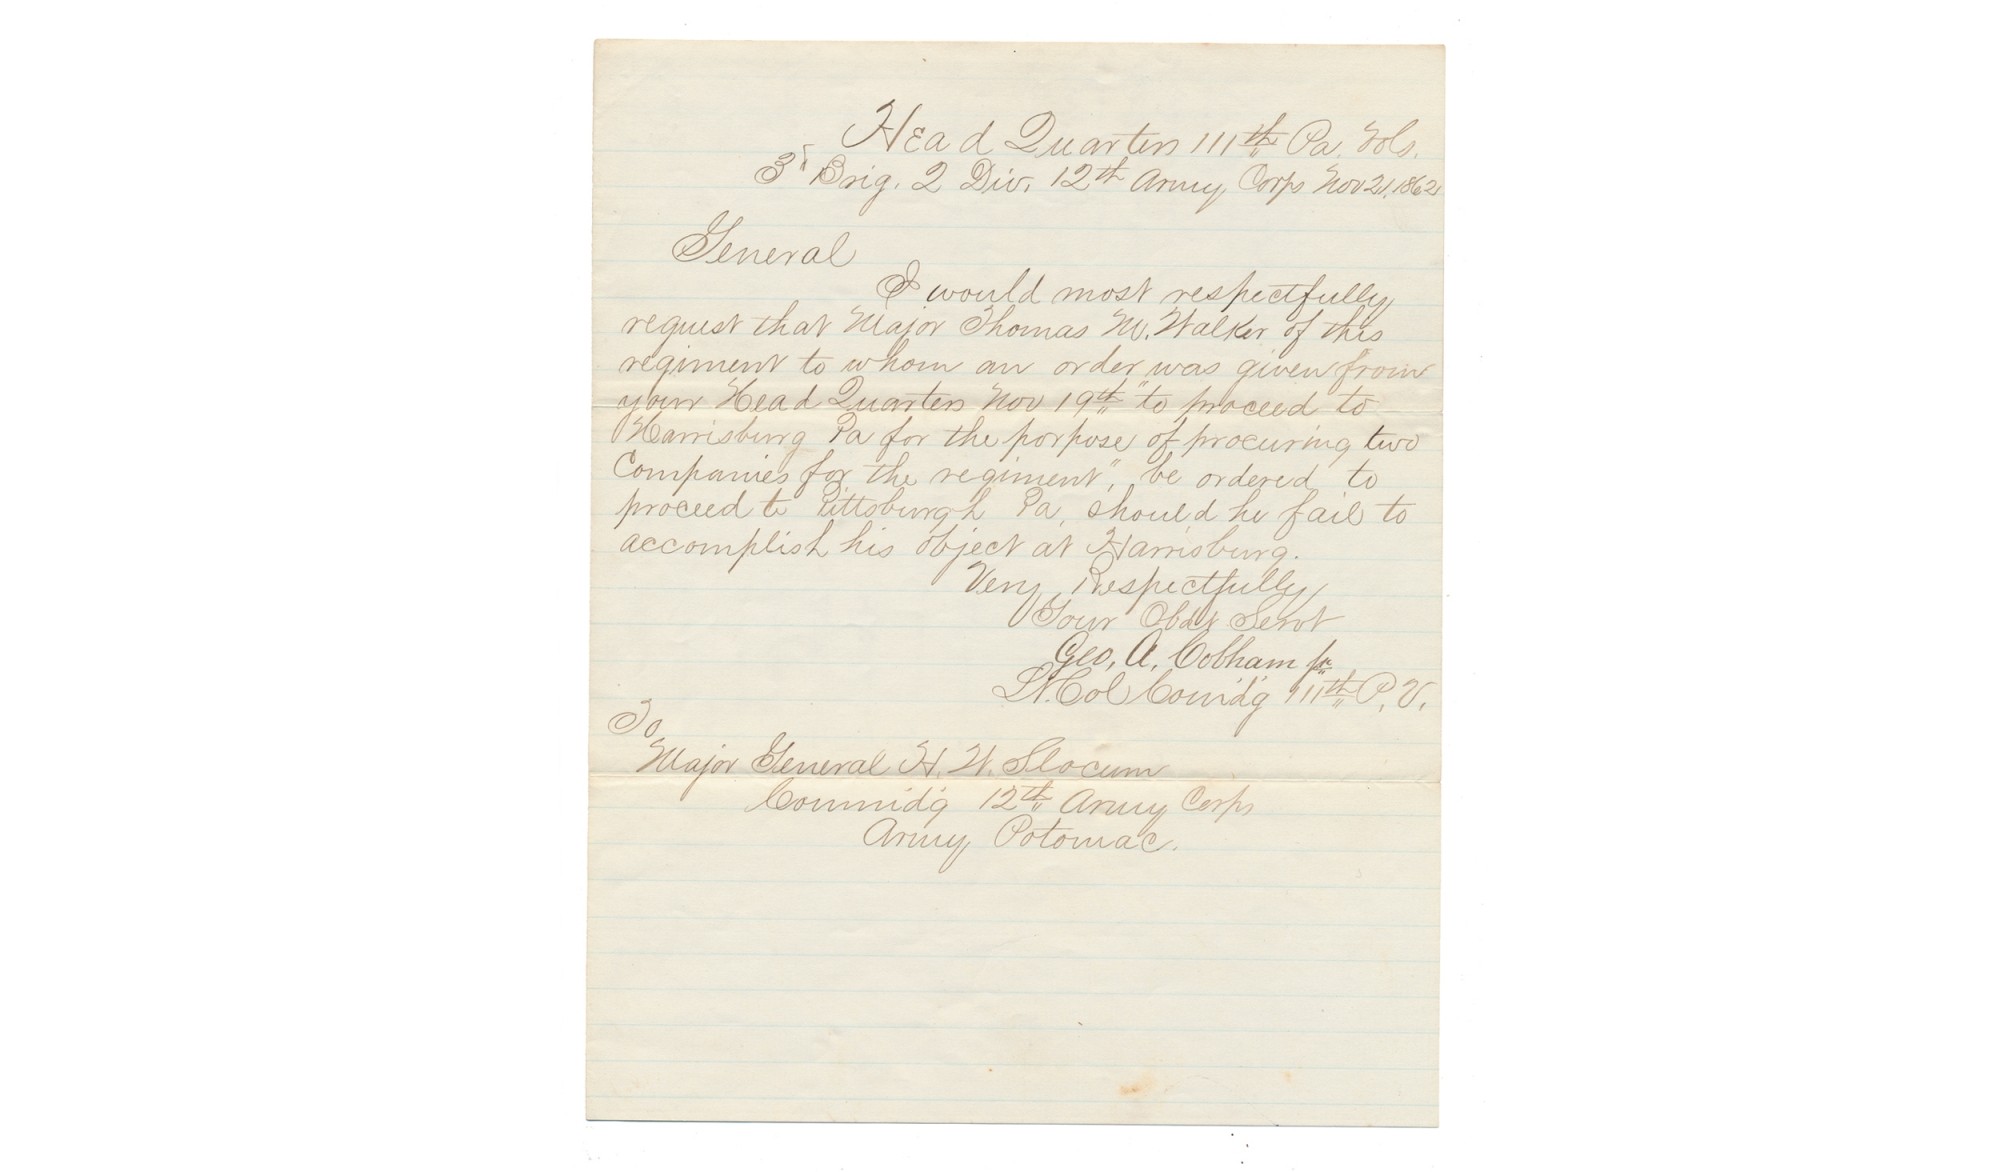 Head Quarters 111th Pa. Vols.
3" Brig. 2 Div. 12th Army Corps Nov 21. 1862
General
I would most respectfully
request that Major Thomas M. Walker of this
regiment to whom an order was given from
your Head Quarters Nov 19th "to proceed to
Harrisburg Pa for the porpose of procuring two
Companies for the regiment", be ordered to
proceed to Pittsburgh Pa, should he fail to
accomplish his object at Harrisburg.
Very Respectfully
Your Obdt Servt
Geo. A. Cobham jr
Lt. Col Comd'g 111th P. V.
To
Major General H. W. Slocum
Commd'g 12th Army Corps
Army Potomac.